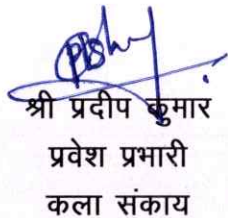 श्री प्रदीप कुमार
प्रवेश प्रभारी
कला संकाय